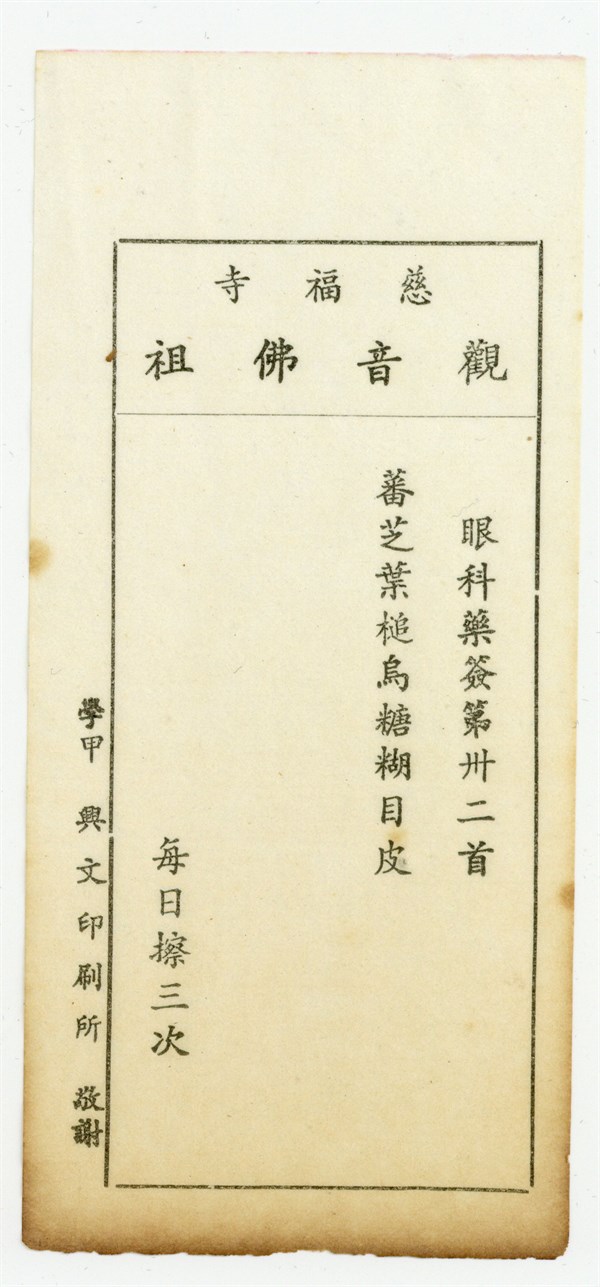 慈福寺
觀音佛祖
眼科藥簽第卅二首
蕃芝葉槌烏糖糊目皮
每日擦三次
學甲 興文印刷所 敬謝